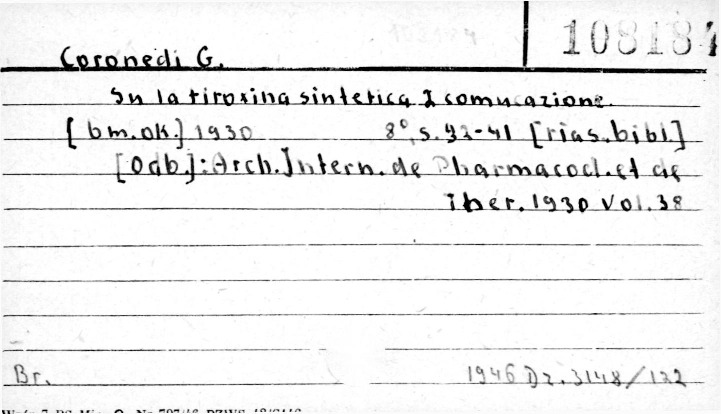 108184
Coronedi G.
Su la tiroxina sintetica I comucazione.
[bm.ok.] 1930 8°, s. 32-41 [rias. bibl.]
[Odb.]: Arch. Intern. de Pharmacod. et de
Ther. 1930 Vol. 38
Br. 1946 Dz. 3148/122